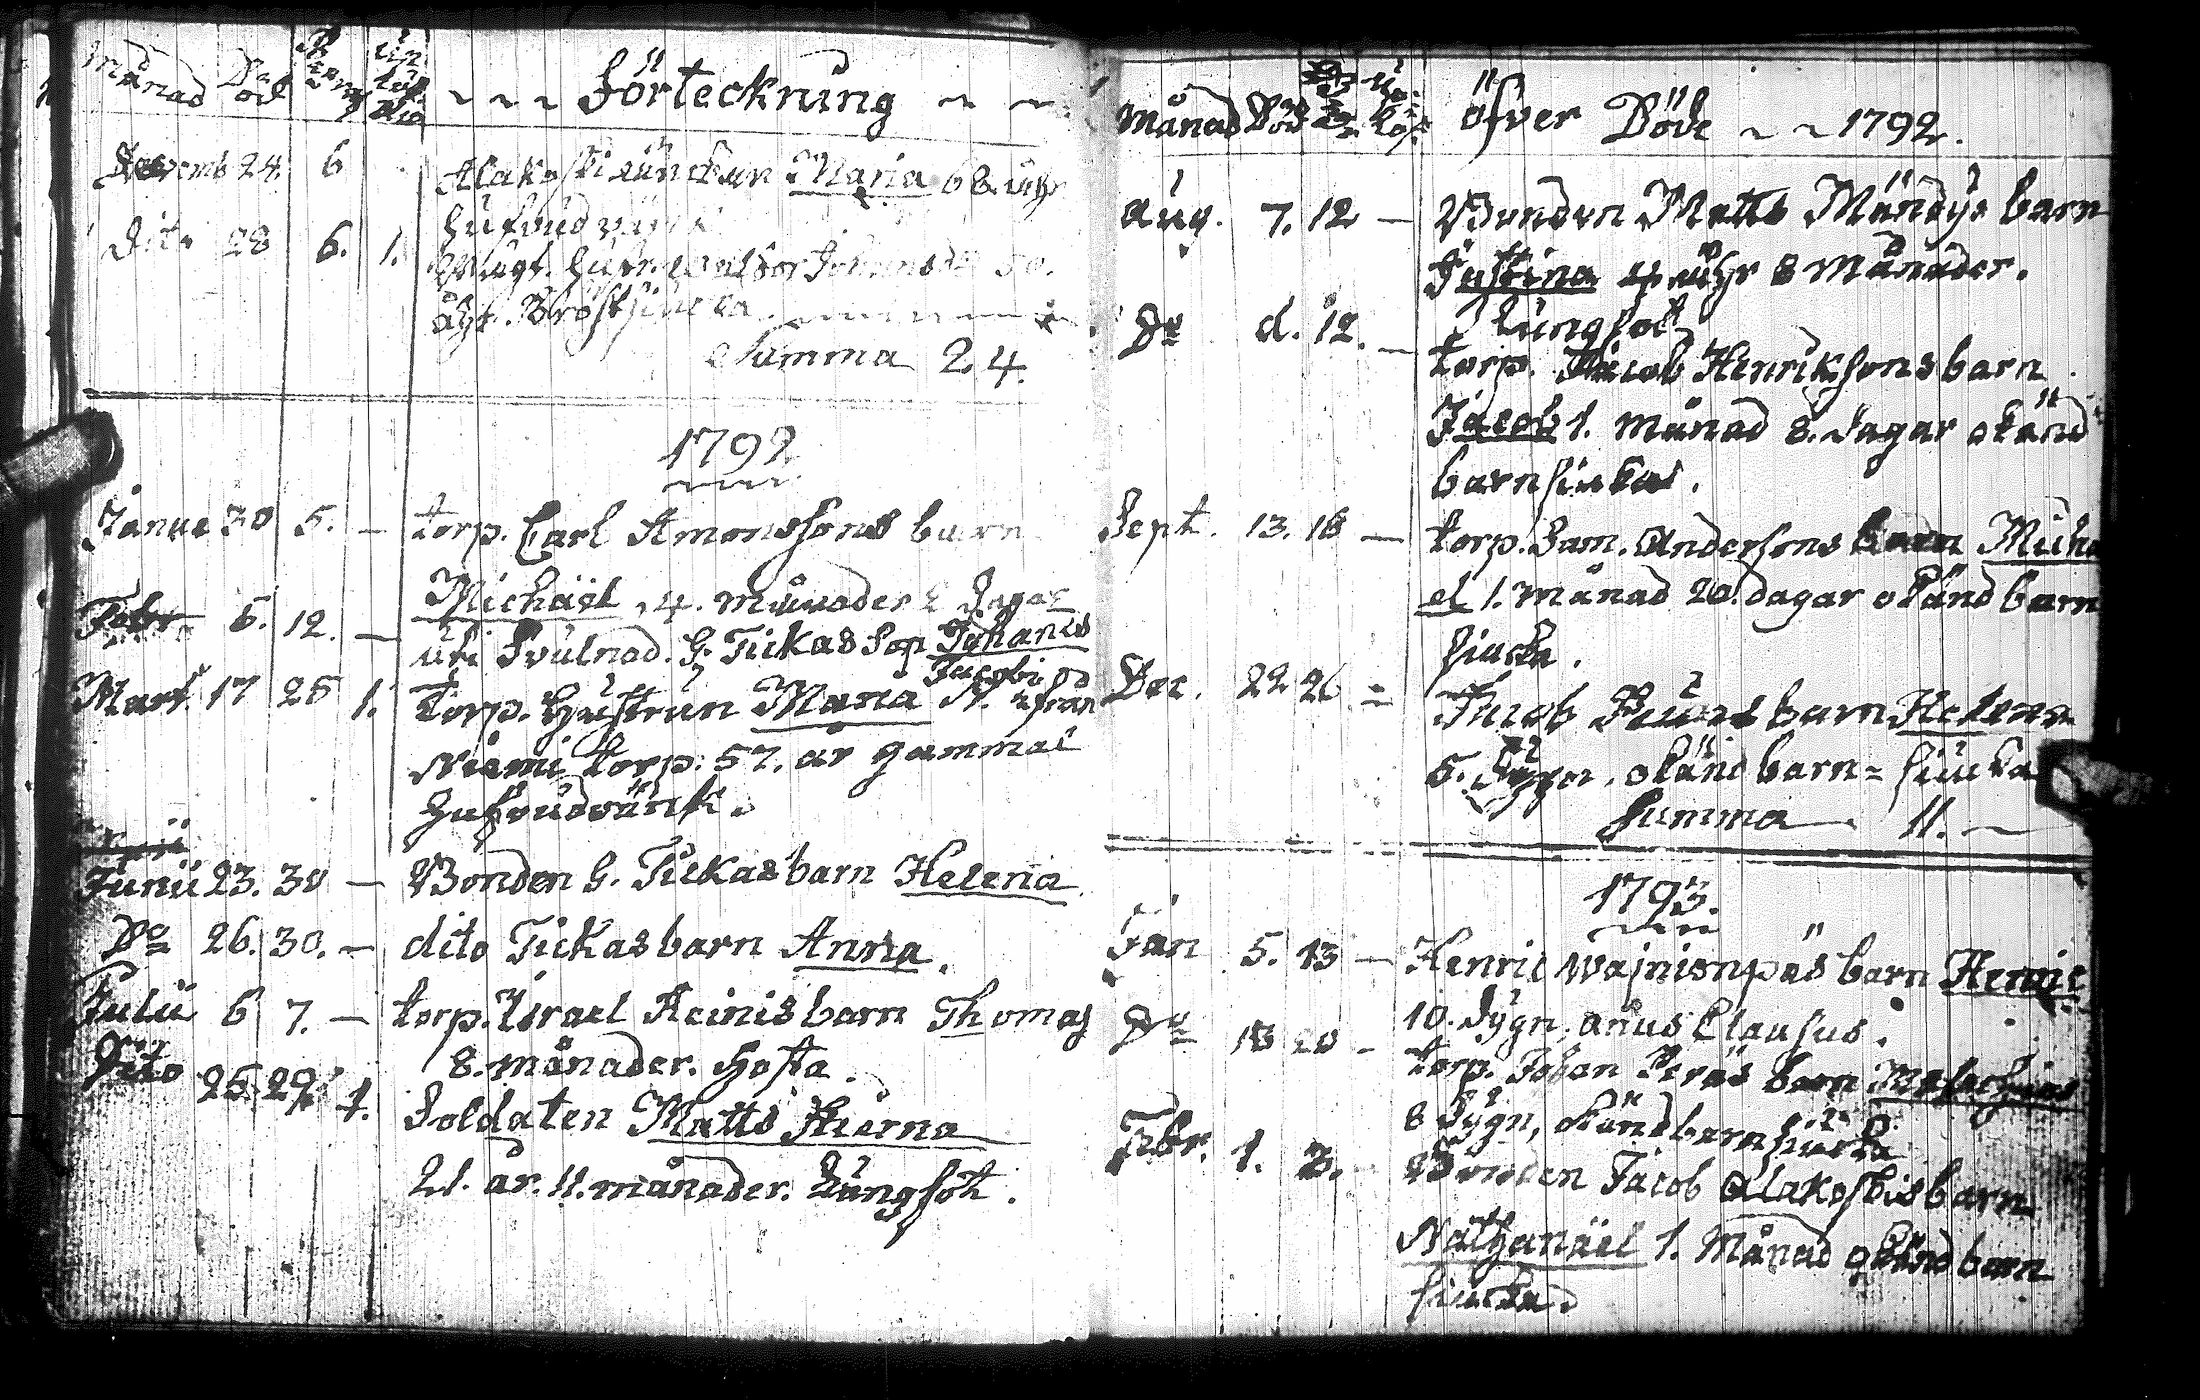 Månad Död ~ ~ ~ Förteckning ~ ~
24. 6 Alakoski Maria
Dito 28 6. 1. Hufvudvärk
50.
åhr. Bröstsiucka
Summa 24.
1792
Janua 30 5. — torp. Carl Amonssons barn
Michäel, 4. månader 2 dagar
Febr 5. 12. — uti Svulnad. G. Tickas Son Johanes
Jacobi
Mart. 17 25 1. torp. Hustrun Maria N. ifrån
Niemi torp: 57. år gammal
Hufvudvärk.
Junii 23. 30 — Bonden G. Tickas barn Helena
Do 26. 30. — dito Tickas barn Anna.
Julii 6 7. — torp. Israel Heinis barn Thomas
8. månader. Hosta.
Dito 25. 29. 1. Soldaten Matts Hierna
21. år. 11. månader. Lungsot.
Månad Död öfver Döde ~ ~ 1792.
Aug. 7. 12 — Bonden Matts Mändys barn
Justina 4 åhr 8 Månader.
Lungsot
Do d. 12. — torp. Jacob Henriksons barn
Jacob 1. månad 8. dagar okänd
barnsiuka.
Sept. 13. 16 — torp. Sam. Andersons barn Micha
el 1. månad 20. dagar okänd barn
siucka.
Dec. 22 26 = Jacob barn Helena
5. dygn. okänd barn= siucka
Summa 11. —
1793.
Jan 5. 13 — Henric Wajnionpäs barn Henric
10. dygn, anus Clausus.
Do 18 20 - torp. Johan Peräs barn
8 dygn, okänd barnsiucka
Febr. 1. 3. - Bonden Jacob Alakoskis barn
Nathanäel 1. Månad okänd barn
siucka.